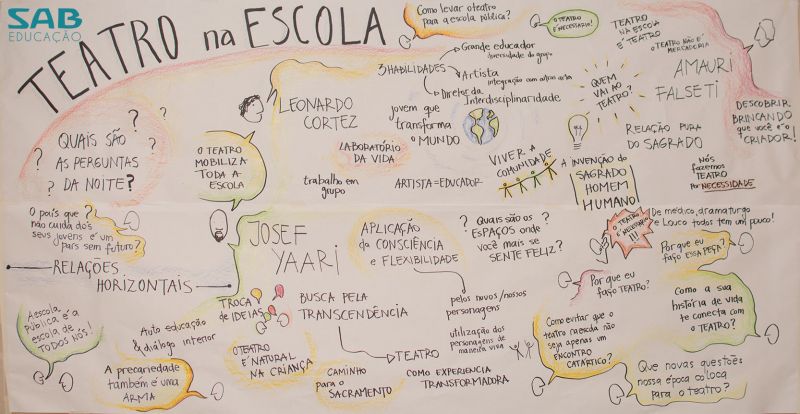 SAB
EDUCAÇÃO
TEATRO na ESCOLA
Como levar o teatro
para a escola pública?
O TEATRO
É NECESSÁRIO!
TEATRO
NA ESCOLA
É TEATRO
O TEATRO NÃO É
MERCADORIA
AMAURI
FALSETI
DESCOBRIR
BRINCANDO
que você é o
CRIADOR!
3 HABILIDADES
Grande educador
diversidade do grupo
Artista
integração com
Diretor da
Interdisciplinaridade
QUEM
VAI AO
TEATRO?
LEONARDO
CORTEZ
jovem que
transforma
o MUNDO
LABORATÓRIO
DA VIDA
trabalho em
grupo
ARTISTA = EDUCADOR
VIVER A
COMUNIDADE
RELAÇÃO PURA
DO SAGRADO
A INVENÇÃO do
SAGRADO
HOMEM
HUMANO!
NÓS
fazemos
TEATRO
por NECESSIDADE
? QUAIS SÃO ?
? AS PERGUNTAS
? DA NOITE?
O TEATRO
MOBILIZA
TODA A
ESCOLA
O país que ?
não cuida dos
seus jovens é um
país sem futuro?
RELAÇÕES
HORIZONTAIS
JOSEF
YAARI
APLICAÇÃO
da CONSCIÊNCIA
e FLEXIBILIDADE
? Quais são os ?
ESPAÇOS onde
você mais se
SENTE FELIZ?
O TEATRO
É NECESSÁRIO
!!!
De médico, dramaturgo
e Louco todos tem um pouco!
Por que eu
faço ESSA PEÇA?
Por que eu
faço TEATRO?
Como a sua
história de vida
te conecta com
o TEATRO?
A escola
pública é a
escola de
TODOS NÓS!
Auto educação
& diálogo interior
TROCA
de IDEIAS
BUSCA PELA
TRANSCENDÊNCIA
pelos novos/nossos
personagens
utilização dos
personagens de
maneira viva
TEATRO
COMO EXPERIENCIA
TRANSFORMADORA
O TEATRO
É NATURAL
NA CRIANÇA
CAMINHO
para o
SACRAMENTO
A precariedade
também é uma
ARMA
Como evitar que o
teatro na escola não
seja apenas um
ENCONTRO
CATÁRTICO?
Que novas questões
nossa época coloca
para o teatro?